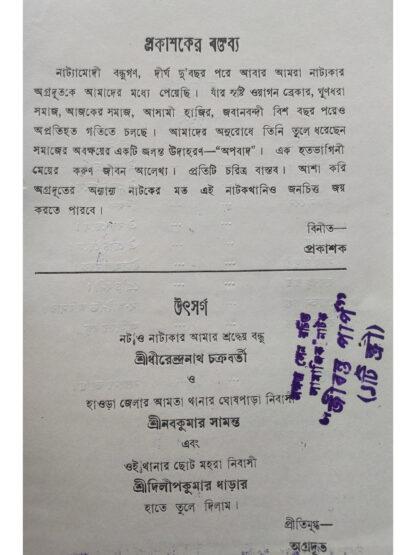 প্রকাশকের বক্তব্য
নাট্যামোদী বন্ধুগণ, দীর্ঘ দু'বছর পরে আবার আমরা নাট্যকার
অগ্রদূতকে আমাদের মধ্যে পেয়েছি। যাঁর সৃষ্টি ওয়াগন ব্রেকার, ঘুণধরা
সমাজ, আজকের সমাজ, আসামী হাজির, জবানবন্দী বিশ বছর পরেও
অপ্রতিহত গতিতে চলছে। আমাদের অনুরোধে তিনি তুলে ধরেছেন
সমাজের অবক্ষয়ের একটি জলন্ত উদাহরণ—“অপবাদ”। এক হতভাগিনী
মেয়ের করুণ জীবন আলেখ্য। প্রতিটি চরিত্র বাস্তব। আশা করি
অগ্রদূতের অন্যান্য নাটকের মত এই নাটকখানিও জনচিত্ত জয়
করতে পারবে।
বিনীত—
প্রকাশক
উৎসর্গ
নট ও নাট্যকার আমার শ্রদ্ধেয় বন্ধু
শ্রীধীরেন্দ্রনাথ চক্রবর্তী
ও
হাওড়া জেলার আমতা থানার ঘোষপাড়া নিবাসী
শ্রীনবকুমার সামন্ত
এবং
ওই থানার ছোট মহরা নিবাসী
শ্রীদিলীপকুমার ধাড়ার
হাতে তুলে দিলাম।
প্রীতিমুগ্ধ—
অগ্রদূত
রচিত
সামাজিক নাটক
"জীবন্ত পাপ"
(১টি স্ত্রী)